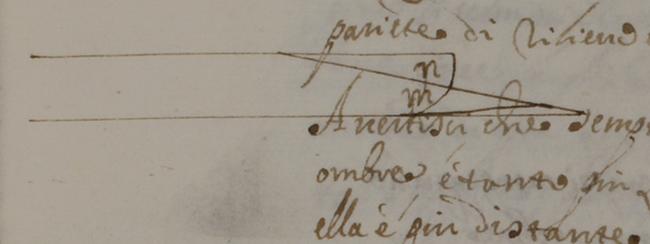 parirete di rilievo
n
m
Avertisci che semp
ombre è tanto più
ella è più distante.